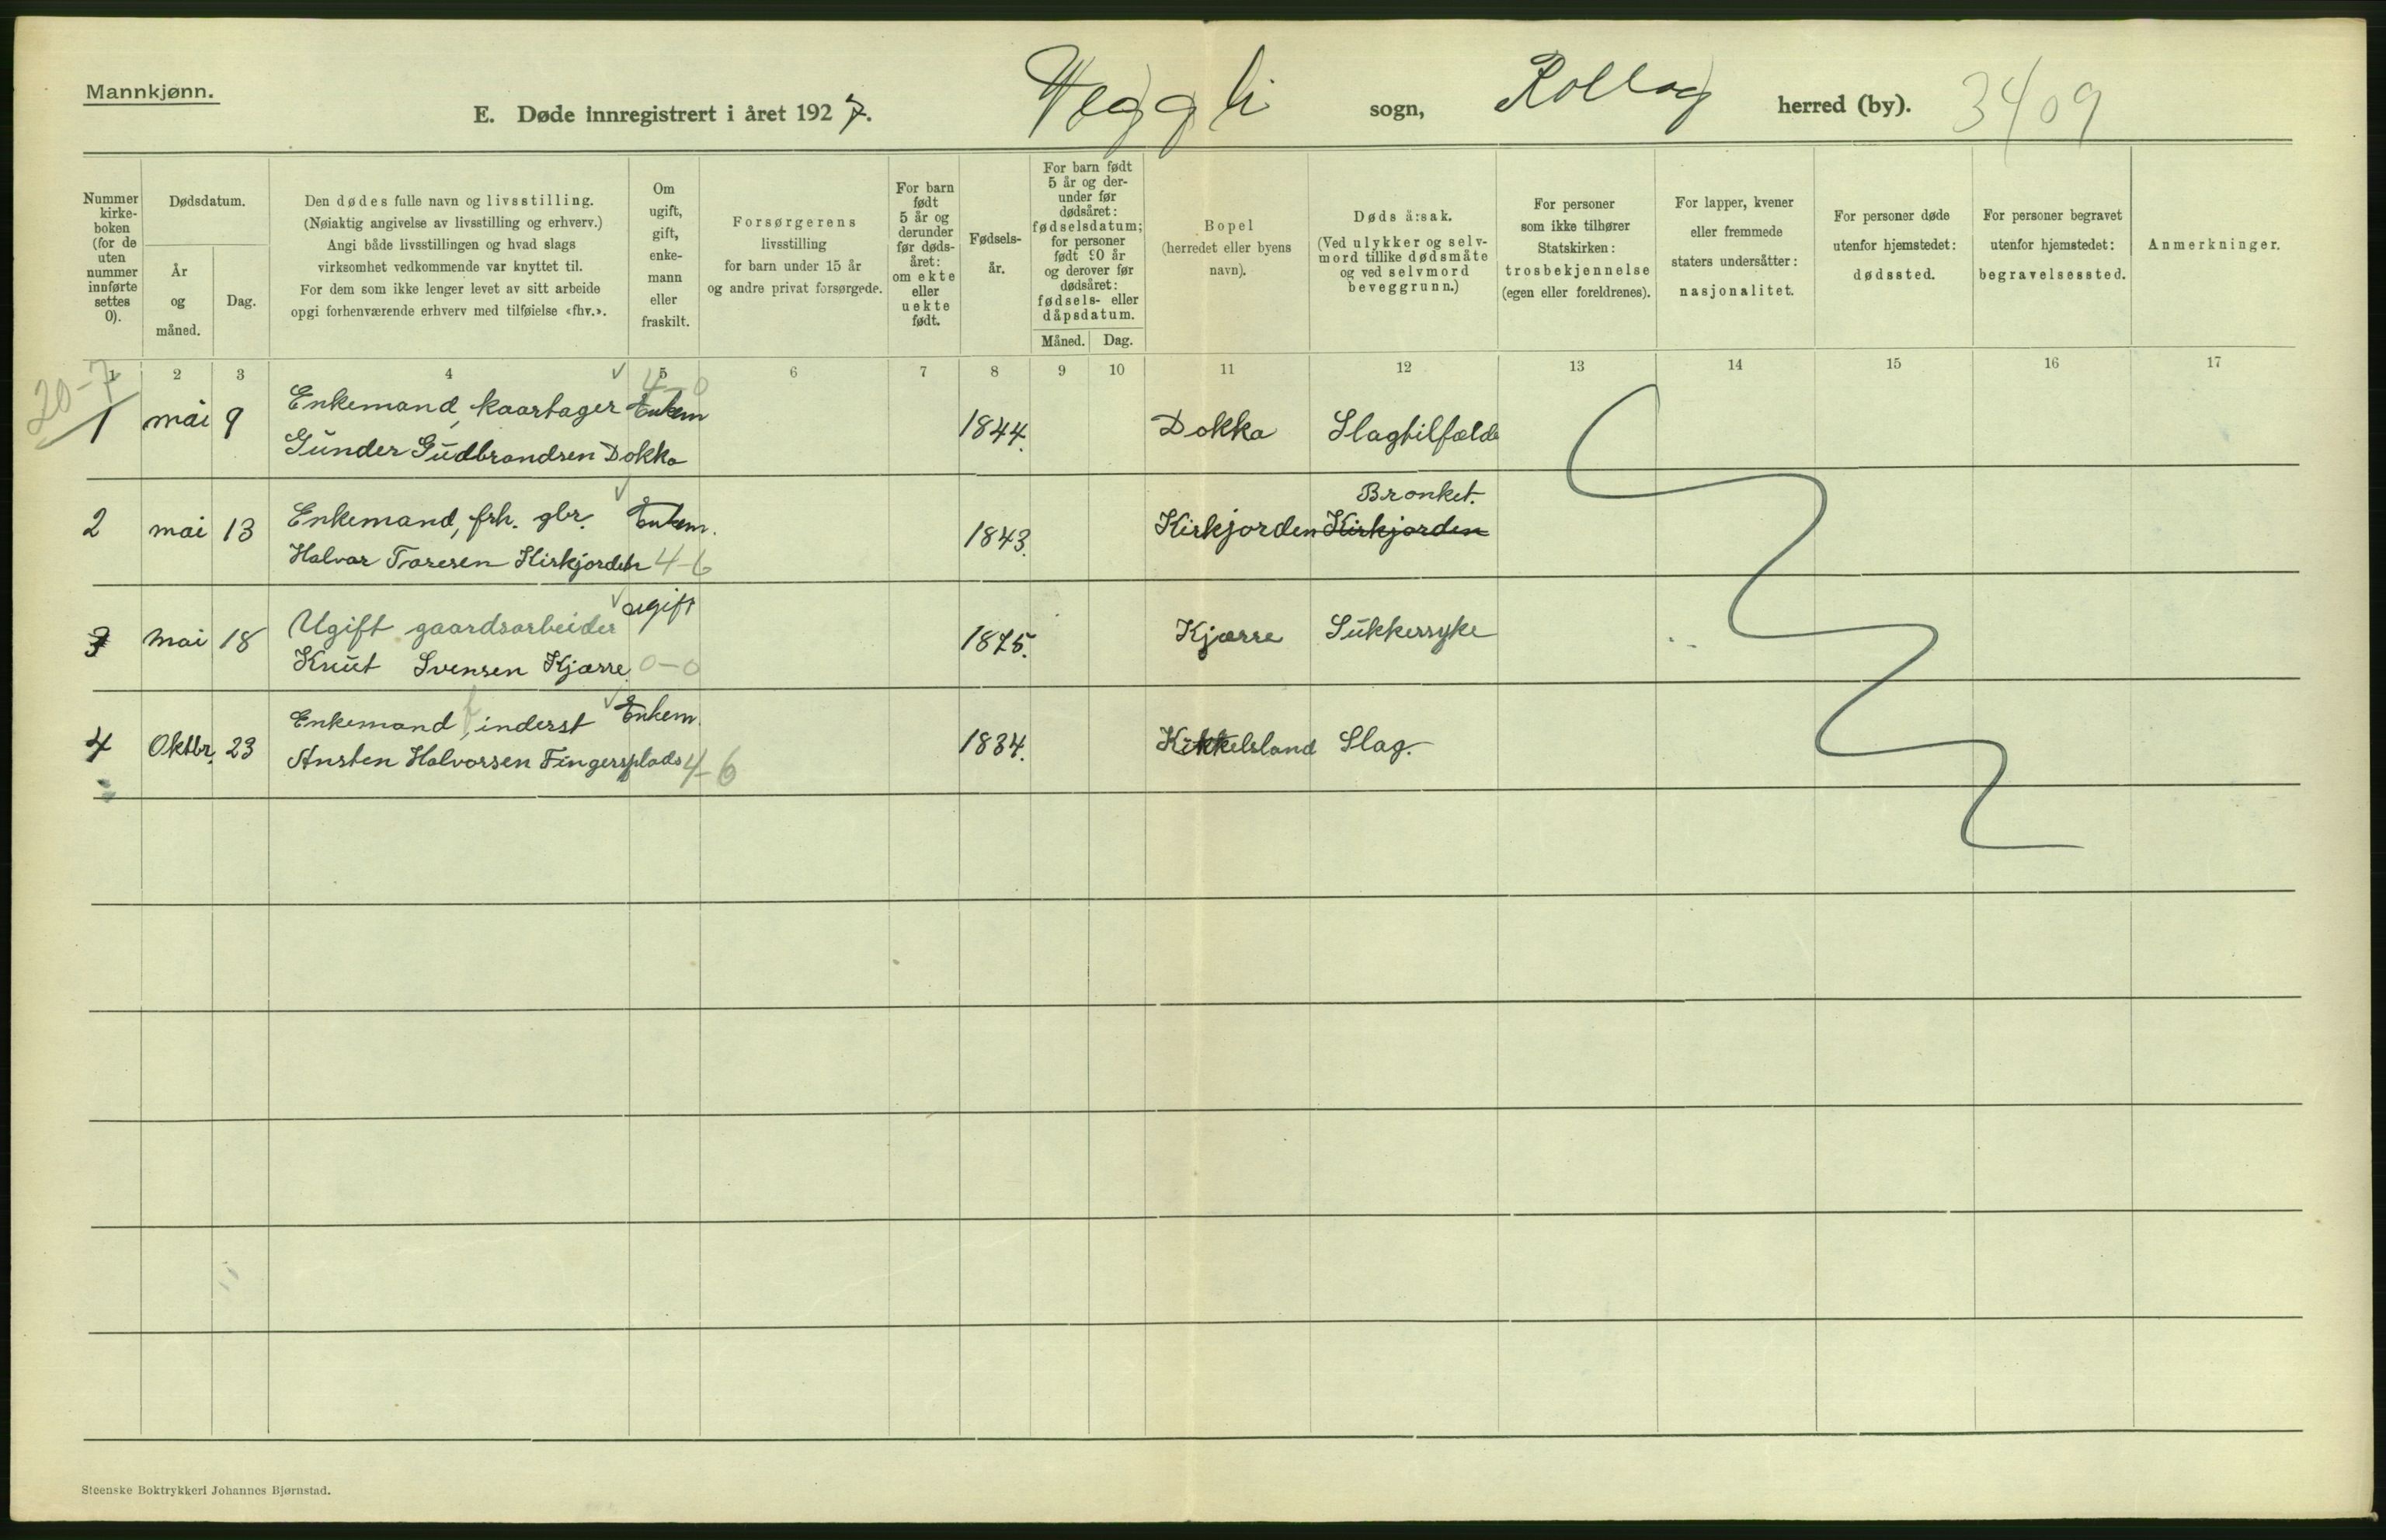 Mannkjønn.
E. Døde innregistrert i året 1927. Veggli sogn, Rollag herred (by). 3409
Nummer kirke-boken (for de uten nummer innførte settes 0).
Dødsdatum.
År og måned.
Dag.
Den dødes fulle navn og livsstilling.
(Nøiaktig angivelse av livsstilling og erhverv.)
Angi både livsstillingen og hvad slags
virksomhet vedkommende var knyttet til.
For dem som ikke lenger levet av sitt arbeide
opgi forhenværende erhverv med tilføielse «fhv.».
Om ugift, gift, enke-mann eller fraskilt.
Forsørgerens
livsstilling
for barn under 15 år
og andre privat forsørgede.
For barn født 5 år og derunder før døds-året: om ekte eller uekte født.
Fødsels-år.
For barn født
5 år og der-
under før
dødsåret:
fødselsdatum;
for personer
født 90 år
og derover før
dødsåret:
fødsels- eller
dåpsdatum.
Måned. Dag.
Bopel
(herredet eller byens
navn).
Døds å:sak.
(Ved ulykker og selv-
mord tillike dødsmåte
og ved selvmord
beveggrunn.)
For personer
som ikke tilhører
Statskirken:
trosbekjennelse
(egen eller foreldrenes).
For lapper, kvener
eller fremmede
staters undersåtter:
nasjonalitet.
For personer døde
utenfor hjemstedet:
dødssted.
For personer begravet
utenfor hjemstedet:
begravelsessted.
Anmerkninger.
1 2 3 4 5 6 7 8 9 10 11 12 13 14 15 16 17
20-7
4-0
1 mai 9 Enkemand, kaartager Enkem 1844. Dokka Slagtilfælde
Gunder Gudbrandsen Dokka
Bronket.
2 mai 13 Enkemand, frh. gbr. Enkem. 1843. Kirkjorden Kirkjorden
Halvar Toresen Kirkjorden 4-6
3 mai 18 Ugift gaardsarbeider ugift 1875. Kjærre Sukkersyke
Knut Svensen Kjærre 0-0
4 Oktbr. 23 Enkemand, f inderst Enkem. 1834. Kikkelsland Slag.
Ansten Halvorsen Fingersplads 4-6
Steenske Boktrykkeri Johannes Bjørnstad.